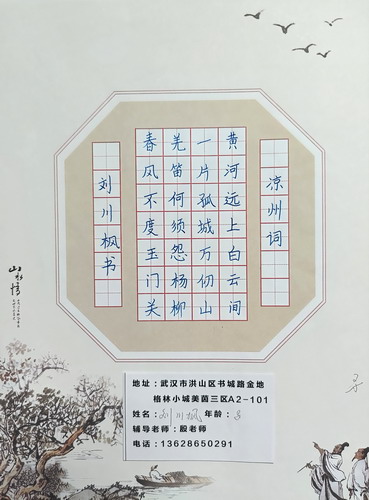 凉州词
黄河远上白云间
一片孤城万仞山
羌笛何须怨杨柳
春风不度玉门关
刘川枫书
山水情
地址：武汉市洪山区书城路金地
格林小城美茵三区A2-101
姓名：刘川枫 年龄：
辅导老师：殷老师
电话：13628650291